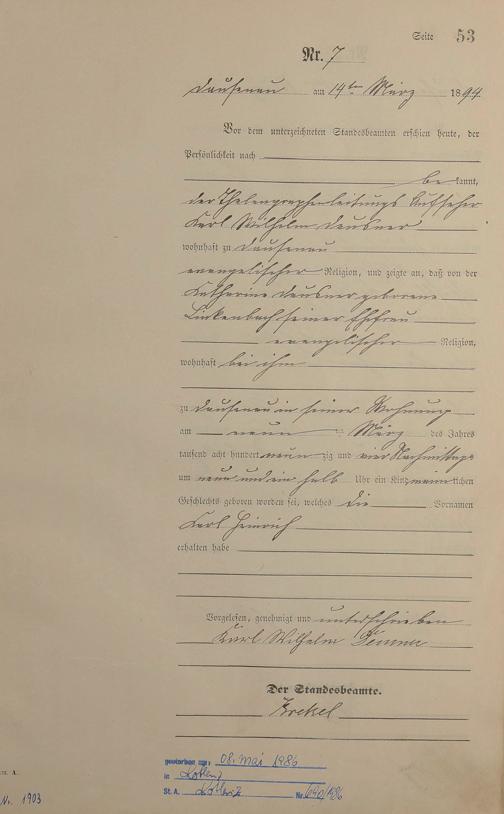 Seite 53
Nr. 7
Dausenau am 14ten März 1894.
Vor dem unterzeichneten Standesbeamten erschien heute, der
Persönlichkeit nach
bekannt,
der Thelegraphenleitungs Aufseher
Karl Wilhelm Deusner
wohnhaft zu Dausenau
evangelischer Religion, und zeigte an, daß von der
Katharine Deusner geborene
Linkenbach seiner Ehefrau
evangelischer Religion,
wohnhaft bei ihm
zu Dausenau in seiner Wohnung
am neun März des Jahres
tausend acht hundert neunzig und vier Nachmittags
um neun und ein halb Uhr ein Kind männlichen
Geschlechts geboren worden sei, welches die Vornamen
Karl Heinrich
erhalten habe
Vorgelesen, genehmigt und unterschrieben
Karl Wilhelm
Der Standesbeamte.
gestorben am: 08. Mai 1986
in Koblenz
St. A. Koblenz Nr. 690/1986
A.
Nr. 1903